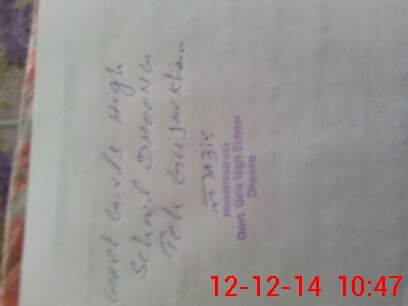 Govt Girls High
School DHOONG
Teh Gujar Khan.
Headmistress
Govt. Girls High School
Dhoong
12-12-14 10:47